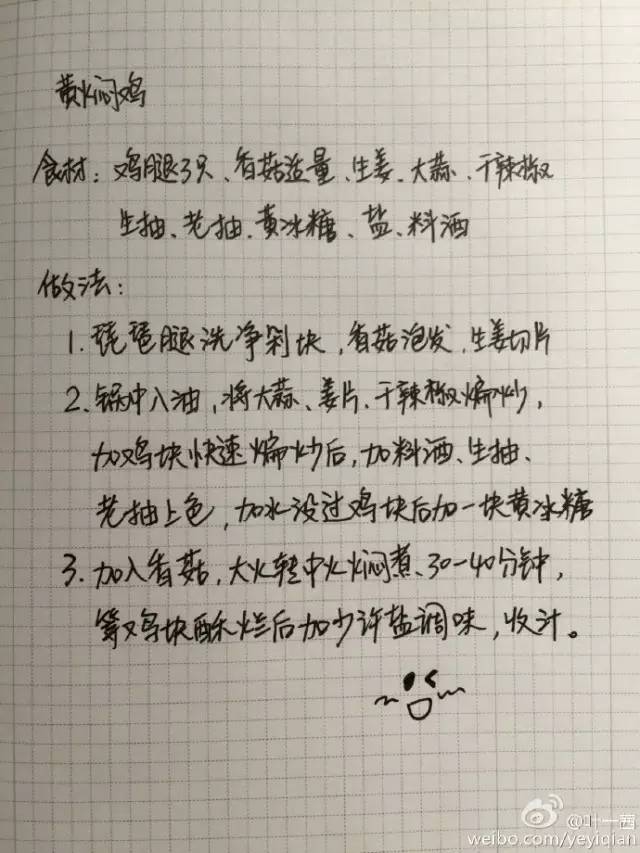 黄焖鸡
食材：鸡腿3只、香菇适量、生姜、大蒜、干辣椒
生抽、老抽、黄冰糖、盐、料酒
做法：
1. 琵琶腿洗净剁块，香菇泡发，生姜切片
2. 锅中入油，将大蒜、姜片、干辣椒煸炒，
加鸡块快速煸炒后，加料酒、生抽、
老抽上色，加水没过鸡块后加一块黄冰糖
3. 加入香菇，大火转中火焖煮、30-40分钟，
等鸡块酥烂后加少许盐调味，收汁。
@叶一茜
weibo.com/yeyiqian